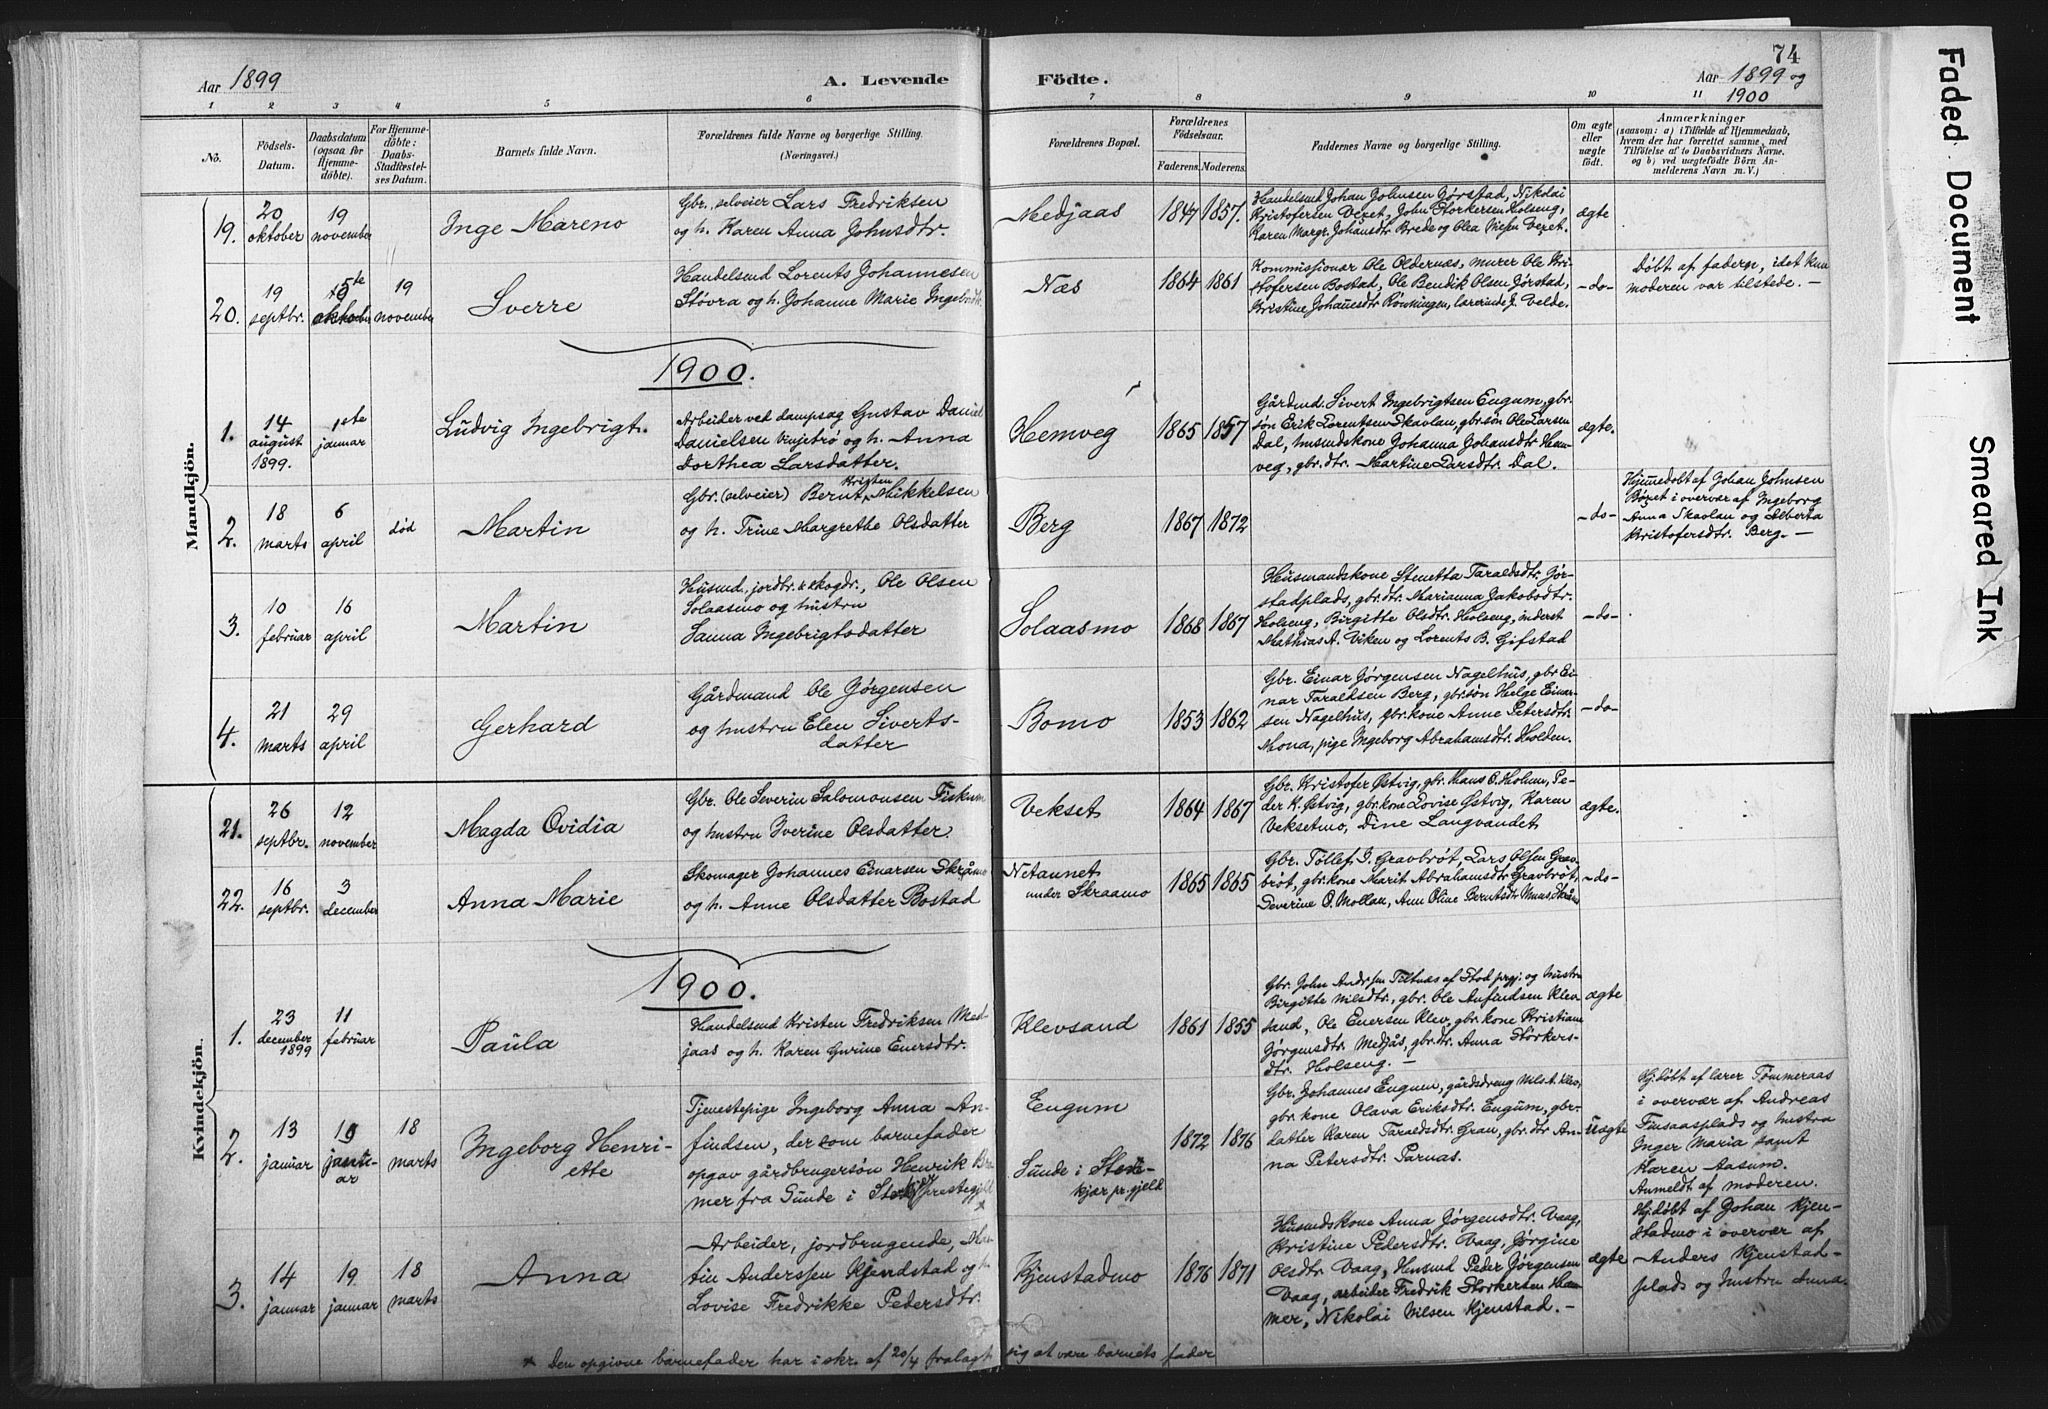 74
Aar 1899
A. Levende
Födte.
Aar 1899 og
1900
1 2 3 4 5 6 7 8 9 10 11
No.
Födsels-
Datum.
Daabsdatum
(ogsaa for
Hjemme-
döbte).
For Hjemme-
döbte:
Daabs-
Stadfæstel-
ses Datum.
Barnets fulde Navn.
Forældrenes fulde Navne og borgerlige Stilling.
(Næringsvei.)
Forældrenes Bopæl.
Forældrenes
Födselsaar.
Faderens. Moderens.
Faddernes Navne og borgerlige Stilling.
Om ægte
eller
uægte
födt.
Anmærkninger
(saasom: a) i Tilfælde af Hjemmedaab,
hvem der har forrettet samme, med
Tilföielse af to Daabsvidners Navne,
og b) ved uægtefödte Börn An-
melderens Navn m. V.)
Mandkjön.
19.
20
oktober
19
november
Inge Mareno
Gbr., selveier Lars Fredriksen
og h. Karen Anna Johnsdtr.
Medjaas
1847 1857.
Handelsmd Johan Johnsen Jørstad, Nikolai
Kristofersen Vexet, John Storkersen Holseng,
Karen Margr. Johansdtr Brede og Olea Nilsen Vexet.
ægte
20.
19
septbr.
5te
oktober
19
november
Sverre
Handelsmd Lorents Johannesen
Støvra og h. Johanne Marie Ingebrdtr.
Næs
1864 1861
Kommissionær Ole Oldernæs, murer Ole Kri-
stofersen Bostad, Ole Bendik Olsen Jørstad,
Kristine Johansdtr Rønningen, lærerinde J. Velde.
-do-
Døbt af faderen, idet kun
moderen var tilstede. -
1900.
1.
14
august
1899.
1ste
januar
Ludvig Ingebrigt.
Arbeider ved dampsag Gustav Daniel
Danielsen Vinjebrø og h. Anna
Dorthea Larsdatter.
Hemveg
1865 1857
Gårdmd. Sivert Ingebrigtsen Engum, gbr.
søn Erik Lorentsen Skavlan, gbr.søn Ole Larsen
Dal, husmdskone Johanna Johansdtr Hem-
veg, gbr.dtr. Martine Larsdtr. Dal.
ægte.
2.
18
marts
6
april
død
Martin
Gbr. (selveier) Bernt Kristen Mikkelsen
og h. Trine Margrethe Olsdatter
Berg
1867 1872
-do-
Hjemmedøbt af Johan Johnsen
Bøxet i overvær af Ingeborg
Anna Skavlan og Alberta
Kristofersdtr. Berg. -
3.
10
februar
16
april
Martin
Husmd., jordbr. & skogdr., Ole Olsen
Solaasmo og hustru
Sanna Ingebrigtsdatter
Solaasmo
1868 1867
Husmandskone Stenetta Taraldsdtr. Jør-
stadplads, gbr.dtr. Marianna Jakobsdtr.
Holseng, Birgitte Olsdtr. Holseng, inderst
Mathias A. Viken og Lorents B. Gifstad
-do-
4.
21
marts
29
april
Gerhard
Gårdmand Ole Jørgensen
og hustru Elen Siverts-
datter
Bomo
1853 1862
Gbr. Einar Jørgensen Nagelhus, gbr. Ei-
nar Taraldsen Berg, gbr.søn Helge Einar-
sen Nagelhus, gbr.kone Anne Petersdtr.
Mona, pige Ingeborg Abrahamsdtr. Holden.
-do-
Kvindekjön.
21.
26
septbr.
12
november
Magda Ovidia
Gbr. Ole Severin Salomonsen Fiskum
og hustru Iverine Olsdatter.
Vekset
1864 1867
Gbr. Kristofer Østvig, gbr. Hans O. Holum, Pe-
der K. Østvig, gbr.kone Lovise Østvig, Karen
Veksetmo, Dine Langvandet
ægte.
22.
16
septbr.
3
december
Anna Marie
Skomager Johannes Einarsen Skråmo
og h. Anne Olsdatter Bostad
Netaunet
under Skraamo
1865 1865
Gbr. Tollef J. Gravbrøt, Lars Olsen Grav-
brøt, gbr.kone Marit Abrahamsdtr Gravbrøt,
Severine O. Mollan, Ann Oline Berntsdtr
-do-
1900.
1.
23
december
1899
11
februar
Paula
Handelsmd Kristen Fredriksen Med-
jaas og h. Karen Gurine Enersdtr.
Klevsand
1861 1855
Gbr. John Andr.sen Tiltnæs af Stod prgj. og hustru
Birgitte Nilsdtr., gbr. Ole Anfindsen Klev-
sand, Ole Enersen Klev, gbr.kone Kristiane
Jørgensdtr. Medjås, gbr.dtr. Anna Storkers-
dtr. Holseng. -
ægte
2.
13
januar
19
janu-
ar
18
marts
Ingeborg Henri-
ette
Tjenestepige Ingeborg Anna An-
findsen, der som barnefader
opgav gårdbrugersøn Henrik Bre-
mer fra Sunde i Stenkjær prestegjeld
*
Engum
Sunde i Sten-
kjær pr.gjeld
1872 1876
Gbr. Johannes Engum, gårdsdreng Nils A. Klev,
gbr.kone Olava Eriksdtr. Engum, gbr.
datter Karen Taraldsdtr. Gran, gbr.dtr An-
na Petersdtr. Parnas.
uægte
Hj.døbt af lærer Tømmeraas
i overvær af Andreas
Finsaasplads og hustru
Inger Maria samt
Karen Aasum.
Anmeldt af moderen.
3.
14
januar
19
januar
18
marts
Anna
Arbeider, jordbrugende, Mar-
tin Anderssen Kjendstad og h.
Lovise Fredrikke Pedersdtr.
Kjenstadmo
1876 1871
Husmdskone Anna Jørgensdtr. Vaag,
Kristine Pedersdtr. Vaag, Jørgine
Olsdtr. Vaag, Husmd Peder Jørgensen
Vaag, arbeider Fredrik Storkersen Ham-
mer, Nikolai Nilsen Kjenstad. -
ægte
Hj.døbt af Johan Kjen-
stadmo i overvær af
Anders Kjenstad-
plads og hustru Anna
* Den opgivne barnefader har i skr. af 20/4 fralagt sig at være barnets fader
Faded Document
Smeared Ink